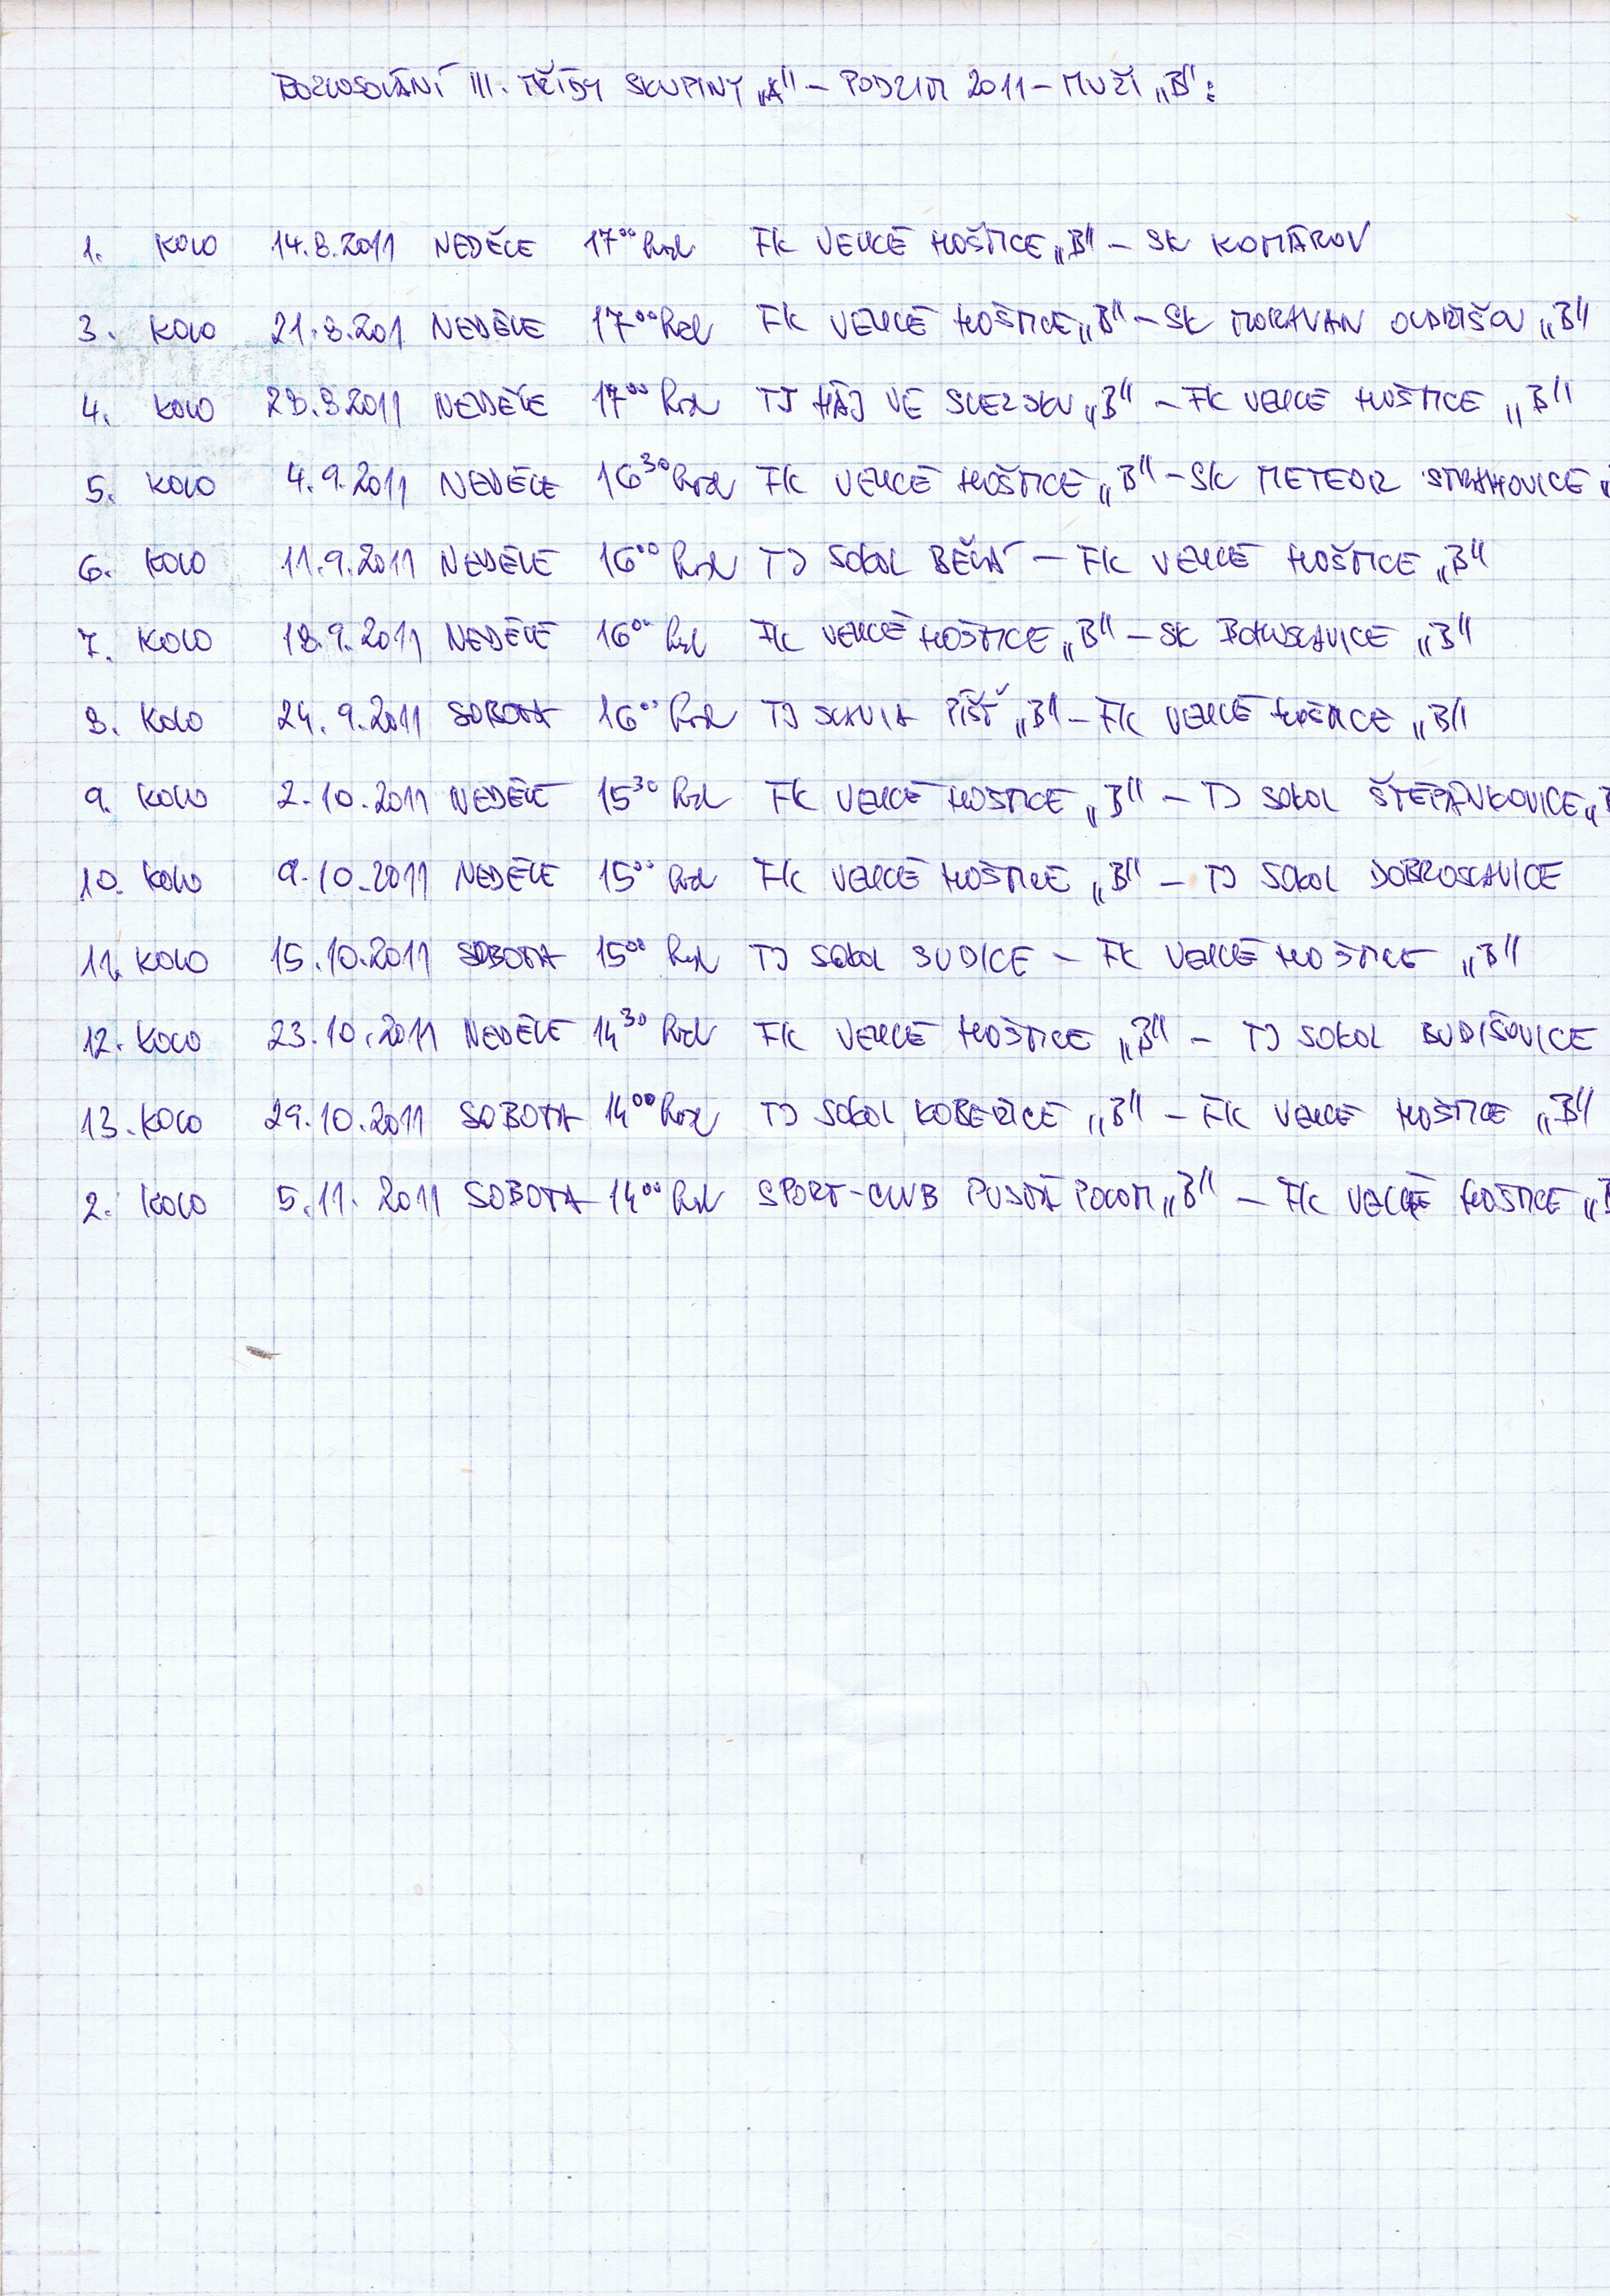 ROZLOSOVÁNÍ III. TŘÍDY SKUPINY „A" – PODZIM 2011 – MUŽI „B":
1. KOLO 14.8.2011 NEDĚLE 17⁰⁰ hod FK VELKÉ HOŠTICE „B" – SK KOMÁROV
3. KOLO 21.8.201 NEDĚLE 17⁰⁰ hod FK VELKÉ HOŠTICE „B" – SK MORAVAN OLDŘIŠOV „B"
4. KOLO 28.8.2011 NEDĚLE 17⁰⁰ hod TJ HÁJ VE SLEZSKU „B" – FK VELKÉ HOŠTICE „B"
5. KOLO 4.9.2011 NEDĚLE 16³⁰ hod FK VELKÉ HOŠTICE „B" – SK METEOR STRAHOVICE „
6. KOLO 11.9.2011 NEDĚLE 16⁰⁰ hod TJ SOKOL BĚLÁ – FK VELKÉ HOŠTICE „B"
7. KOLO 18.9.2011 NEDĚLE 16⁰⁰ hod FK VELKÉ HOŠTICE „B" – SK BOHUSLAVICE „B"
8. KOLO 24.9.2011 SOBOTA 16⁰⁰ hod TJ SLAVIA PÍŠŤ „B" – FK VELKÉ HOŠTICE „B"
9. KOLO 2.10.2011 NEDĚLE 15³⁰ hod FK VELKÉ HOŠTICE „B" – TJ SOKOL ŠTĚPÁNKOVICE „B
10. KOLO 9.10.2011 NEDĚLE 15⁰⁰ hod FK VELKÉ HOŠTICE „B" – TJ SOKOL DOBROSLAVICE
11. KOLO 15.10.2011 SOBOTA 15⁰⁰ hod TJ SOKOL SUDICE – FK VELKÉ HOŠTICE „B"
12. KOLO 23.10.2011 NEDĚLE 14³⁰ hod FK VELKÉ HOŠTICE „B" – TJ SOKOL BUDIŠOVICE
13. KOLO 29.10.2011 SOBOTA 14⁰⁰ hod TJ SOKOL KOBEŘICE „B" – FK VELKÉ HOŠTICE „B"
2. KOLO 5.11.2011 SOBOTA 14⁰⁰ hod SPORT-CLUB PUSTÁ POLOM „B" – FK VELKÉ HOŠTICE „B